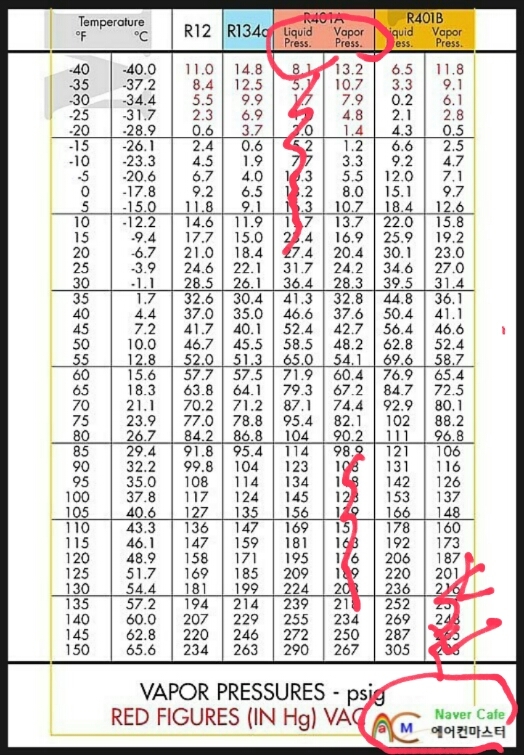 Temperature R12 R134a R401A R401B
°F °C Liquid Press. Vapor Press. Vapor Press.
-40 -40.0 11.0 14.8 8.1 13.2 6.5 11.8
-35 -37.2 8.4 12.5 5.1 10.7 3.3 9.1
-30 -34.4 5.5 9.9 7.9 0.2 6.1
-25 -31.7 2.3 6.9 4.8 2.1 2.8
-20 -28.9 0.6 3.7 1.4 4.3 0.5
-15 -26.1 2.4 0.6 1.2 6.6 2.5
-10 -23.3 4.5 1.9 3.3 9.2 4.7
-5 -20.6 6.7 4.0 5.5 12.0 7.1
0 -17.8 9.2 6.5 8.0 15.1 9.7
5 -15.0 11.8 9.1 10.7 18.4 12.6
10 -12.2 14.6 11.9 13.7 22.0 15.8
15 -9.4 17.7 15.0 16.9 25.9 19.2
20 -6.7 21.0 18.4 27.4 20.4 30.1 23.0
25 -3.9 24.6 22.1 31.7 24.2 34.6 27.0
30 -1.1 28.5 26.1 36.4 28.3 39.5 31.4
35 1.7 32.6 30.4 41.3 32.8 44.8 36.1
40 4.4 37.0 35.0 46.6 37.6 50.4 41.1
45 7.2 41.7 40.1 52.4 42.7 56.4 46.6
50 10.0 46.7 45.5 58.5 48.2 62.8 52.4
55 12.8 52.0 51.3 65.0 54.1 69.6 58.7
60 15.6 57.7 57.5 71.9 60.4 76.9 65.4
65 18.3 63.8 64.1 79.3 67.2 84.7 72.5
70 21.1 70.2 71.2 87.1 74.4 92.9 80.1
75 23.9 77.0 78.8 95.4 82.1 102 88.2
80 26.7 84.2 86.8 104 90.2 111 96.8
85 29.4 91.8 95.4 114 98.9 121 106
90 32.2 99.8 104 123 131 116
95 35.0 108 114 134 142 126
100 37.8 117 124 145 153 137
105 40.6 127 135 156 166 148
110 43.3 136 147 169 178 160
115 46.1 147 159 181 192 173
120 48.9 158 171 195 206 187
125 51.7 169 185 209 220 201
130 54.4 181 199 224 236
135 57.2 194 214 239 252
140 60.0 207 229 255 234 269
145 62.8 220 246 272 250 287
150 65.6 234 263 290 267 305
VAPOR PRESSURES - psig
RED FIGURES (IN Hg) VAC
a M C
Naver Cafe
에어컨마스터